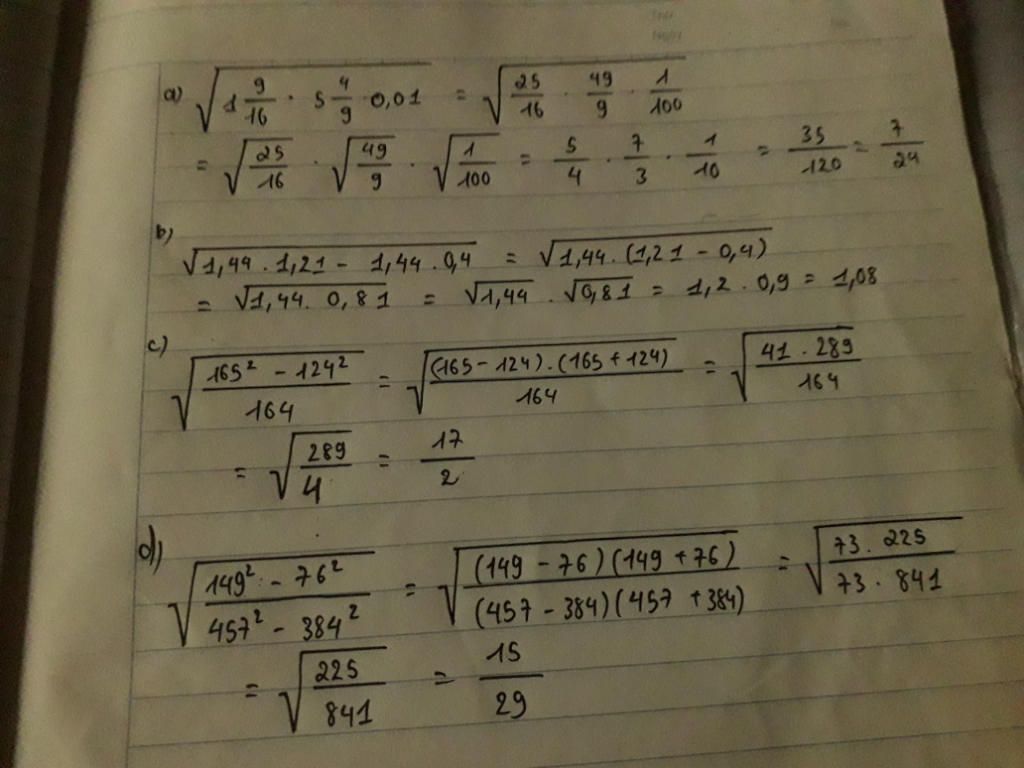 a) √(1 9/16 · 5 4/9 · 0,01) = √(25/16 · 49/9 · 1/100)
= √(25/16) · √(49/9) · √(1/100) = 5/4 · 7/3 · 1/10 = 35/120 = 7/24
b)
√(1,44 . 1,21 - 1,44 . 0,4) = √(1,44 . (1,21 - 0,4))
= √(1,44 . 0,81) = √(1,44) . √(0,81) = 1,2 . 0,9 = 1,08
c)
√((165² - 124²)/164) = √(((165 - 124) . (165 + 124))/164) = √((41 . 289)/164)
= √(289/4) = 17/2
d)
√((149² - 76²)/(457² - 384²)) = √(((149 - 76)(149 + 76))/((457 - 384)(457 + 384))) = √((73 . 225)/(73 . 841))
= √(225/841) = 15/29